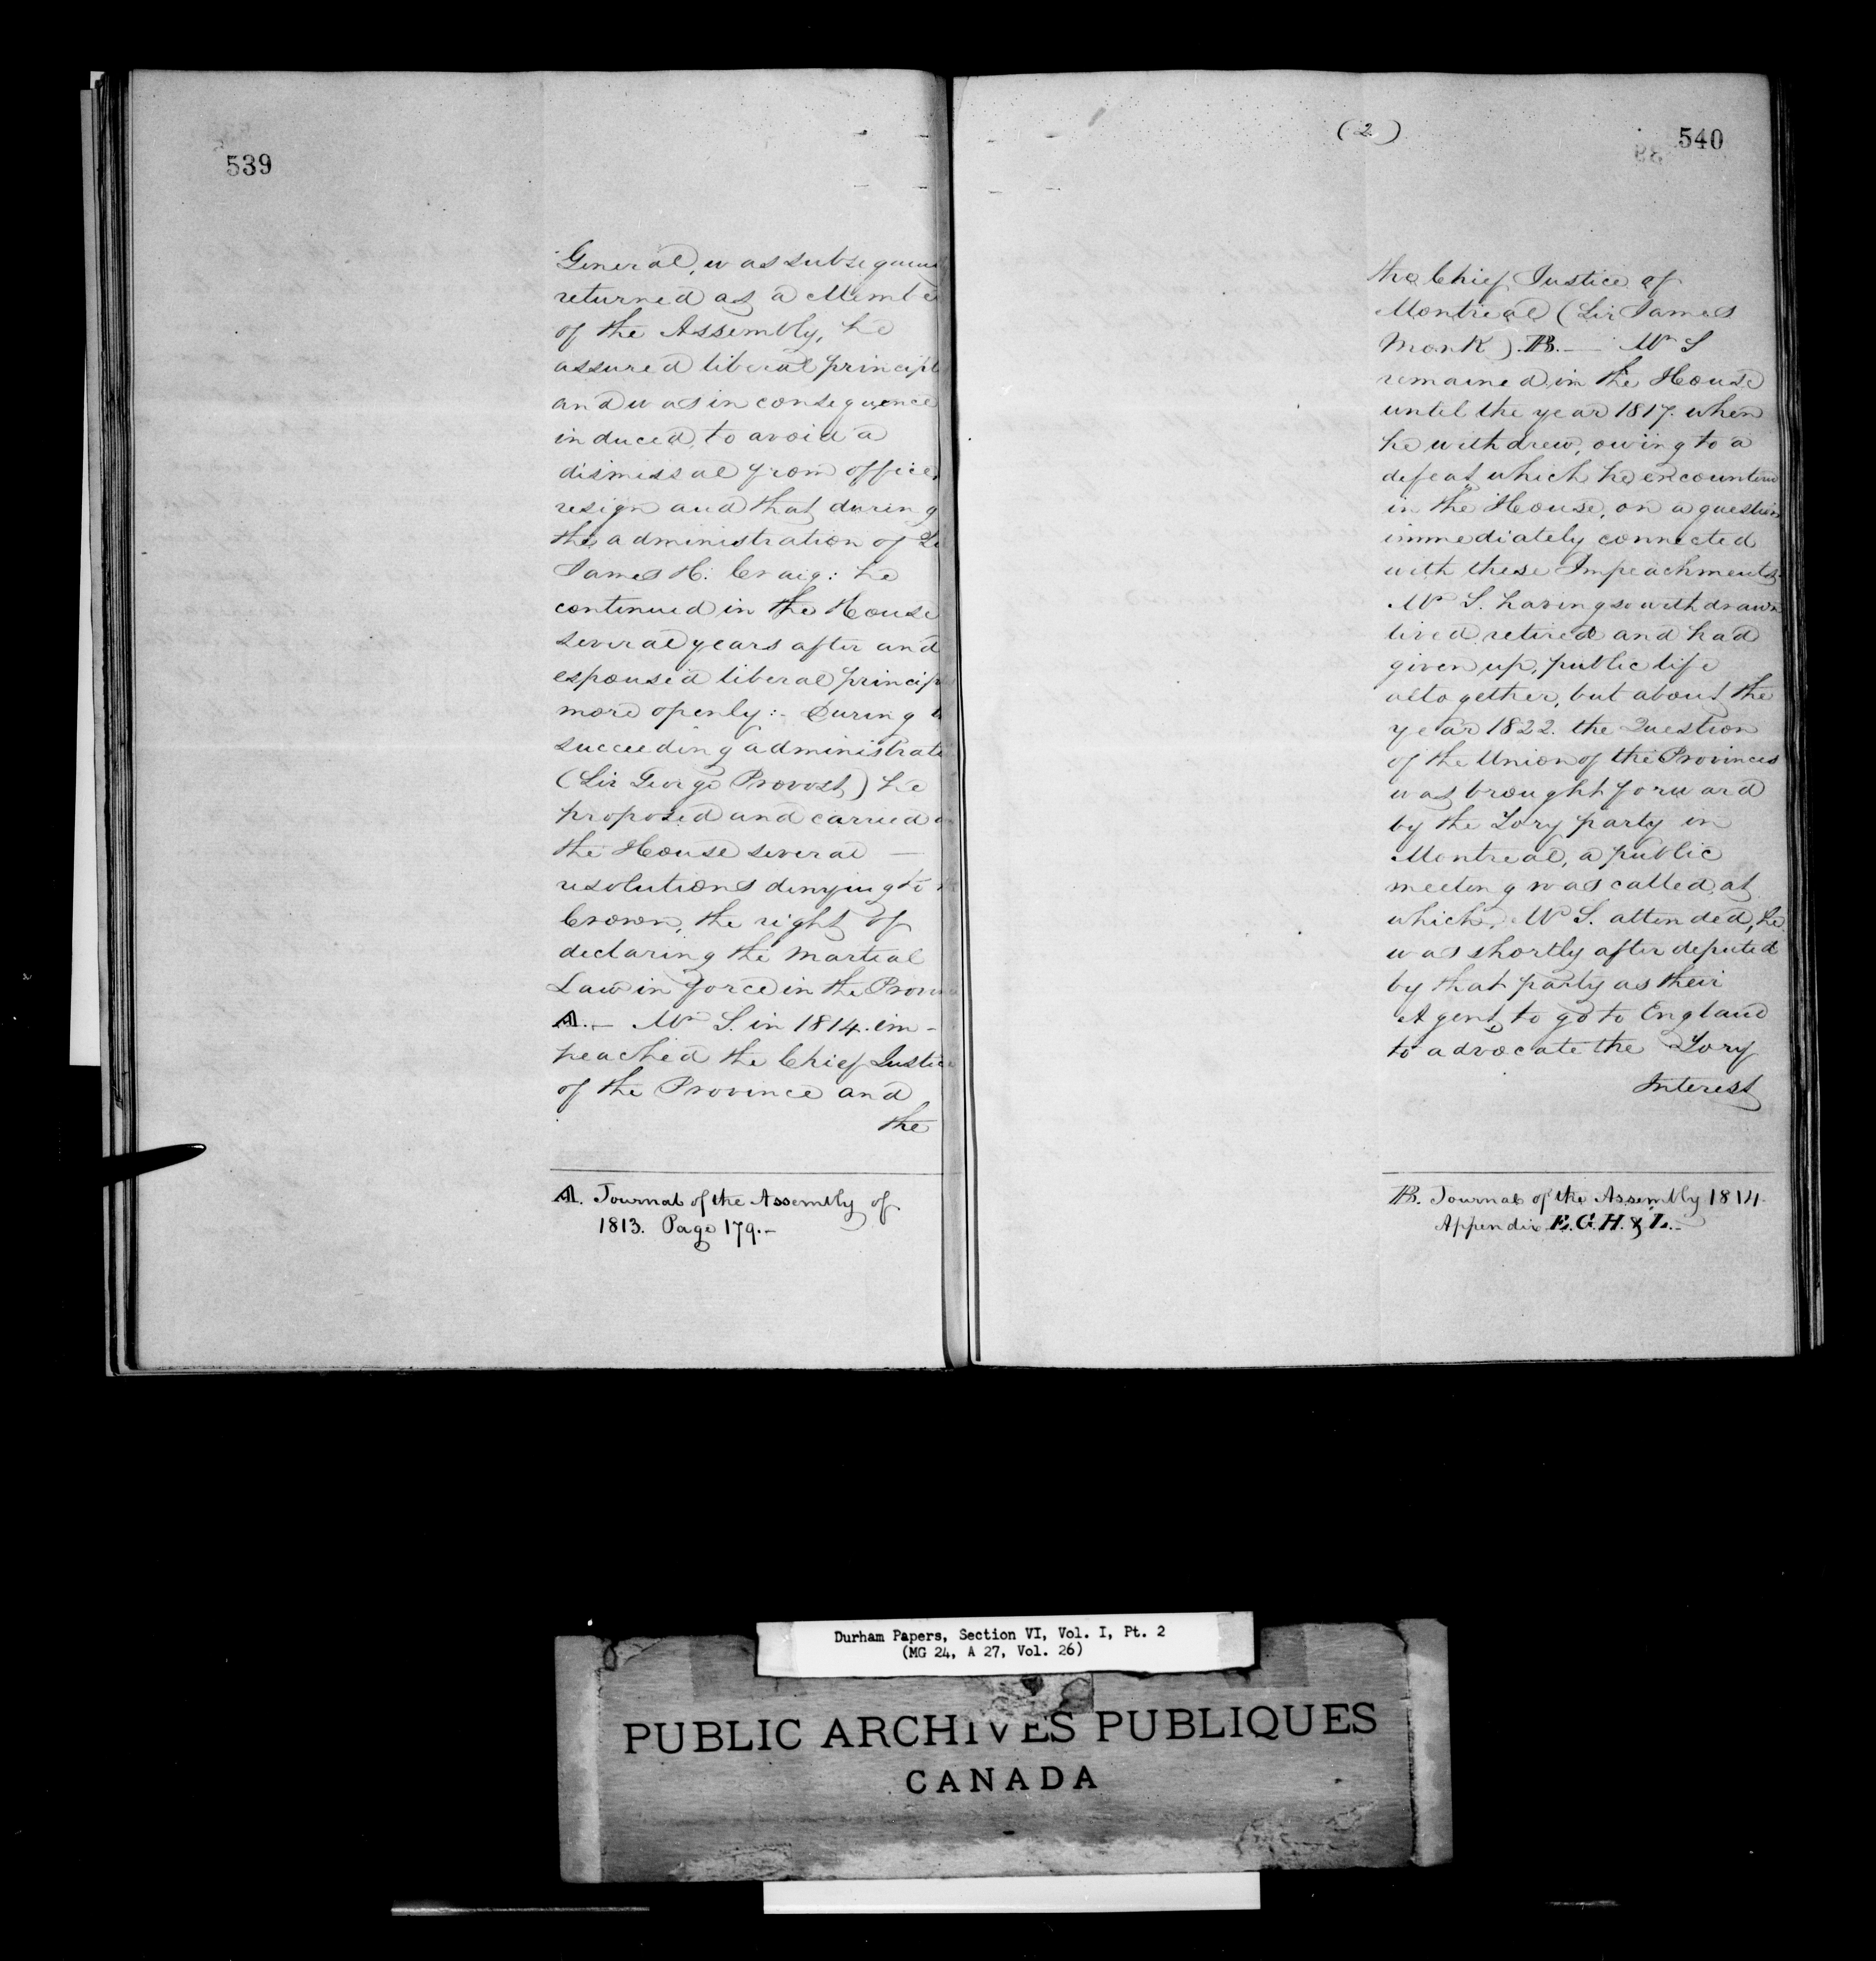 539
General, was subsequen
returned as a Membe
of the Assembly, he
assured liberal principl
and was in consequence
induced, to avoid a
dismissal from office,
resign and that during
the administration of Si
James H. Craig: he
continued in the House
several years after and
espoused liberal princip
more openly:- During
succeeding administrati
(Sir George Provost) he
proposed and carried
the House several —
resolutions denying to
Crown, the right of
declaring the Martial
Law in force in the Provin
A.- Mr S. in 1814. im-
peached the Chief Justice
of the Province and
the
A. Journal of the Assembly of
1813. Page 179.-
(2)
540
the Chief Justice of
Montreal (Sir James
Monk). B.— Mr S
remained in the House
until the year 1817. when
he withdrew, owing to a
defeat which he encountered
in the House, on a question
immediately connected
with these Impeachments.
Mr S. having so withdrawn
lived retired and had
given up, public life
altogether, but about the
year 1822. the Question
of the Union of the Provinces
was brought forward
by the Tory party in
Montreal, a public
meeting was called at
which Mr S. attended, he
was shortly after deputed
by that party as their
Agent, to go to England
to advocate the Tory
Interest
B. Journal of the Assembly 1814.
Appendix E. G. H. & L.-
Durham Papers, Section VI, Vol. I, Pt. 2
(MG 24, A 27, Vol. 26)
PUBLIC ARCHIVES PUBLIQUES
CANADA